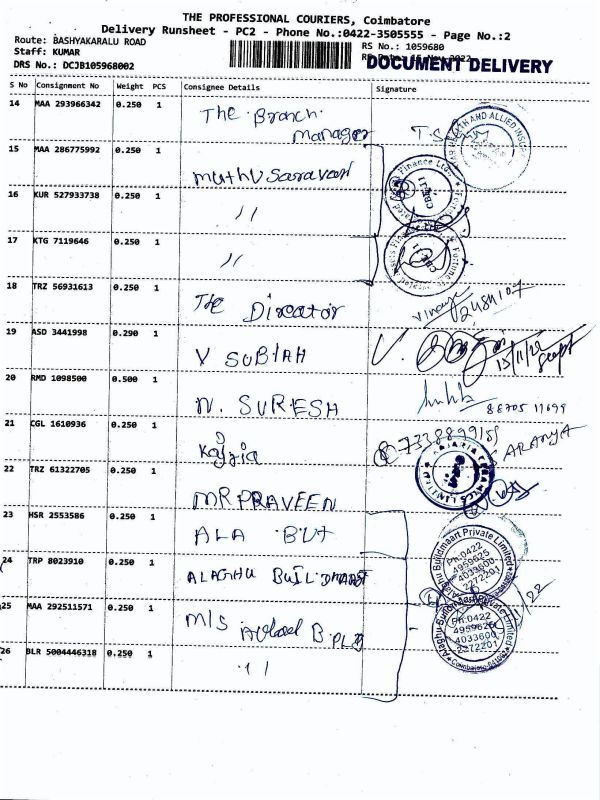 THE PROFESSIONAL COURIERS, Coimbatore
Delivery Runsheet - PC2 - Phone No.:0422-3505555 - Page No.:2
Route: BASHYAKARALU ROAD
RS No.: 1059680
Staff: KUMAR
DOCUMENT DELIVERY
DRS No.: DCJB105968002
S No Consignment No Weight PCS Consignee Details Signature
14 MAA 293966342 0.250 1 The Branch
manager
15 MAA 286775992 0.250 1 muthu Saravan
16 KUR 527933738 0.250 1 //
17 KTG 7119646 0.250 1 //
18 TRZ 56931613 0.250 1 The Director
19 ASD 3441998 0.290 1 V SUBIAH V. 15/11/22
20 RMD 1098500 0.500 1 N. SURESH 88705 17699
21 CGL 1610936 0.250 1 7338899155 ARANYA
22 TRZ 61322705 0.250 1 MR PRAVEEN
23 HSR 2553586 0.250 1 ALA BUI
24 TRP 8023910 0.250 1 ALAGHU BUILDMAART
25 MAA 292511571 0.250 1 M/S
26 BLR 5004446318 0.250 1 ''
Alaghu Buildmaart Private Limited
Ph:0422
4959625
4033600
2272201
Alaghu Buildmaart Private Limited
Ph:0422
4959625
4033600
2272201